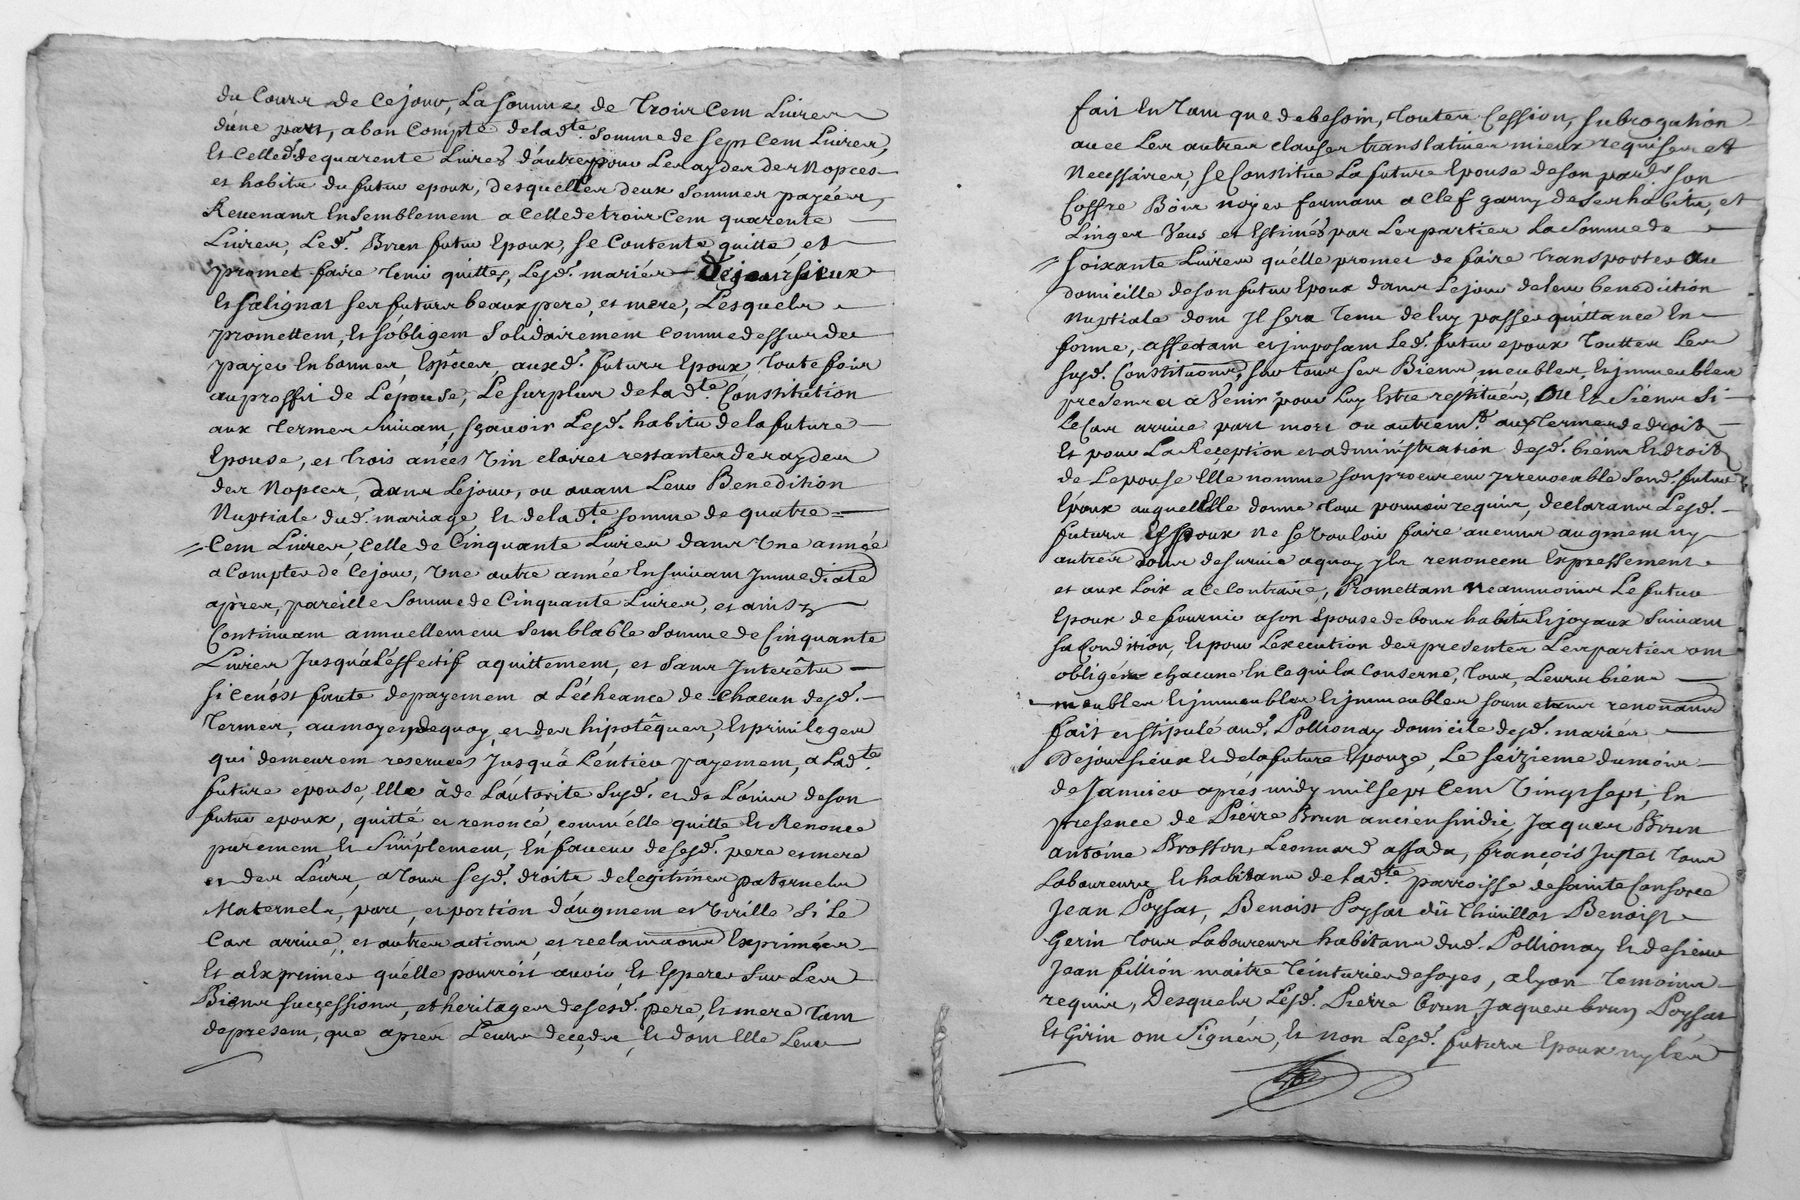 du Cours de Cejour, La somme de Trois Cent Livres
d'une part, a bon Compte de lad.te somme de sept Cent Livres,
Et Celle d. de quarente Livres d'autre pour Le raydes des Nopces
et habits du futur epoux, desquelles deux sommes payées,
Revenans Ensemblement a Celle de trois Cent quarente
Livres, Led. Brun futur Epoux, se Contente quitte et
promet faire Tenir quittes, Lesd. mariés Dejoursieux
Et Salignat ses futurs beaux pere, et mere, Lesquels
promettent, Et s'obligent solidairement Comme dessus de
payer En bonnes Espèces, auxd. futurs Epoux, Toutefois
au proffit de L'épouse, Le surplus de lad.te Constitution
aux Termes suivant, sçavoir Lesd. habits de la future
Epouse, et trois anées Vin clairet restantes de raydes
des Nopces, dans Lejour, ou avant Leur Benediction
Nuptiale dud. mariage, Et de lad.te somme de quatre =
Cent Livres, Celle de Cinquante Livres dans Une année
a Compter de Cejour, Une autre année Ensuivant Jmmediate
après, pareille somme de Cinquante Livres, et ainsy
Continuant annuellement semblable somme de Cinquante
Livres Jusqu'à l'éffectif aquittement, et sans Interêts
si ce n'ést faute de payement a L'écheance de Chacun desd.
Termes, au moyen de quoy, et des hipotêques, Et privileges
qui demeurent reservés Jusqu'à L'entier payement, a Lad.te
future epouse, Elle à de L'autorité susd. et de L'avis de son
futur epoux, quitté et renoncé, comm'elle quitte Et Renonce
purement, Et Simplement, En faveur de sesd. pere et mere
et des Leurs, a Tous sesd. droits de legitimes paternels
Maternels, part, et portion d'augment et Virille si Le
Cas arrive, et autres actions, et reclamaons Exprimées
Et a Exprimer qu'elle pourroit avoir, Et Esperer sur Les
Biens successions, et heritages de sesd. pere, Et mere Tant
de present, que après Leurs decedes, Et dont Elle Leur
fait En Tant que de besoin, Toutes Cession, subrogation
avec Les autres clauses translatives mieux requises et
Necessaires, se Constitue La future Epouse de son pard. son
Coffre Bois noyer fermant a Clef garny de ses habits, et
Linges Veus et Estimés par Les parties La somme de
soixante Livres qu'elle promet de faire Transporter au
domicille de son futur Epoux dans Lejour de leur benediction
Nuptiale dont Jl sera Tenu de luy passer quittance En
forme, affectant et imposant Led. futur epoux Touttes Les
susd. Constitutions, sur tous ses Biens meubles, Et immeubles
presens et a Venir pour Luy Estre restitués, Ou Es Siens si
Le Cas arrive part mort ou autrem.t aux Termes de droit
Et pour La Reception et administration desd. biens Et droits
de Lepouse Elle nomme son procureur irrevocable Sond. futur
Epoux auquel Elle donne Tout pouvoir requis, declarans Lesd.
futurs Espoux Ne se vouloir faire aucuns augment ny
autres dons de survie a quoy ils renoncent Expressement
et aux Loix a ce Contraire, Promettant Neanmoins Le futur
Epoux de fournir a son Epouse de bons habits Et joyaux suivant
sa Condition, Et pour L'execution des presentes Les parties ont
obligés chacune En ce qui la Conserne, Tous, Leurs biens
meubles Et immeubles Et jmmeubles soumettans renonans
fait et stipulé aud. Pollionay domicile desd. mariés
Dejoursieux Et de la future Epouze, Le seizieme du mois
de Janvier après midy mil sept Cent Vingt sept, En
presence de Pierre Brun ancien sindic, Jaques Brun
antoine Brosson, Leonnard assada, françois Justet Tous
Laboureurs Et habitans de lad.te parroisse de sainte Consorce
Jean Poyset, Benoist Poyset dit Chivillot Benoist
Gerin Tous Laboureurs habitans dud. Pollionay Et de sieur
Jean fillion maitre Teinturier de soyes, a Lyon Temoins
requis, Desquels Lesd. Pierre brun, Jaques brun, Poyset
Et Girin ont signés, Et non Lesd. futurs Epoux ny Les